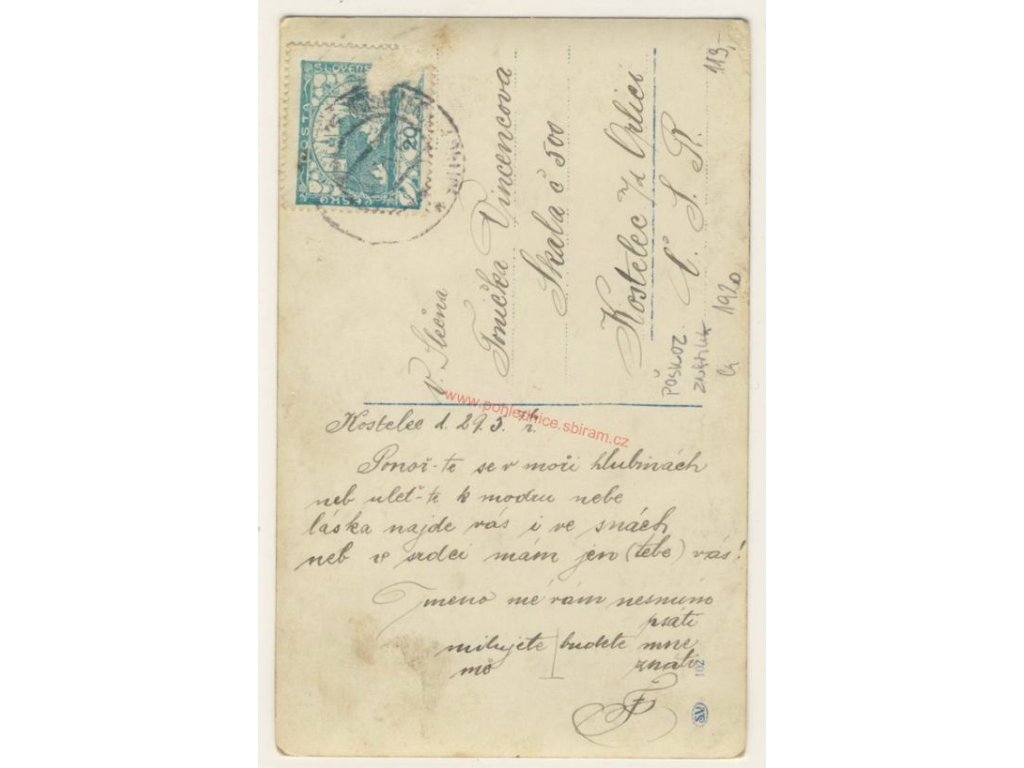 POŠTA
ČESKO
SLOVENS
20
V. Slečna
Tonička Vincencova
Skala č 500
Kostelec n/ Orlicí
Č. S. R.
119,-
1920
POŠKOZ
www.pohlednice.sbiram.cz
Kostelec d. 29.3. r.
Ponoř-te se v moři hlubinách
neb uleť-te k modru nebe
láska najde vás i ve snách
neb v srdci mám jen (tebe) vás!
Jmeno mé vám nesmíno
psáti
milujete budete mne
mě znáti
F
102